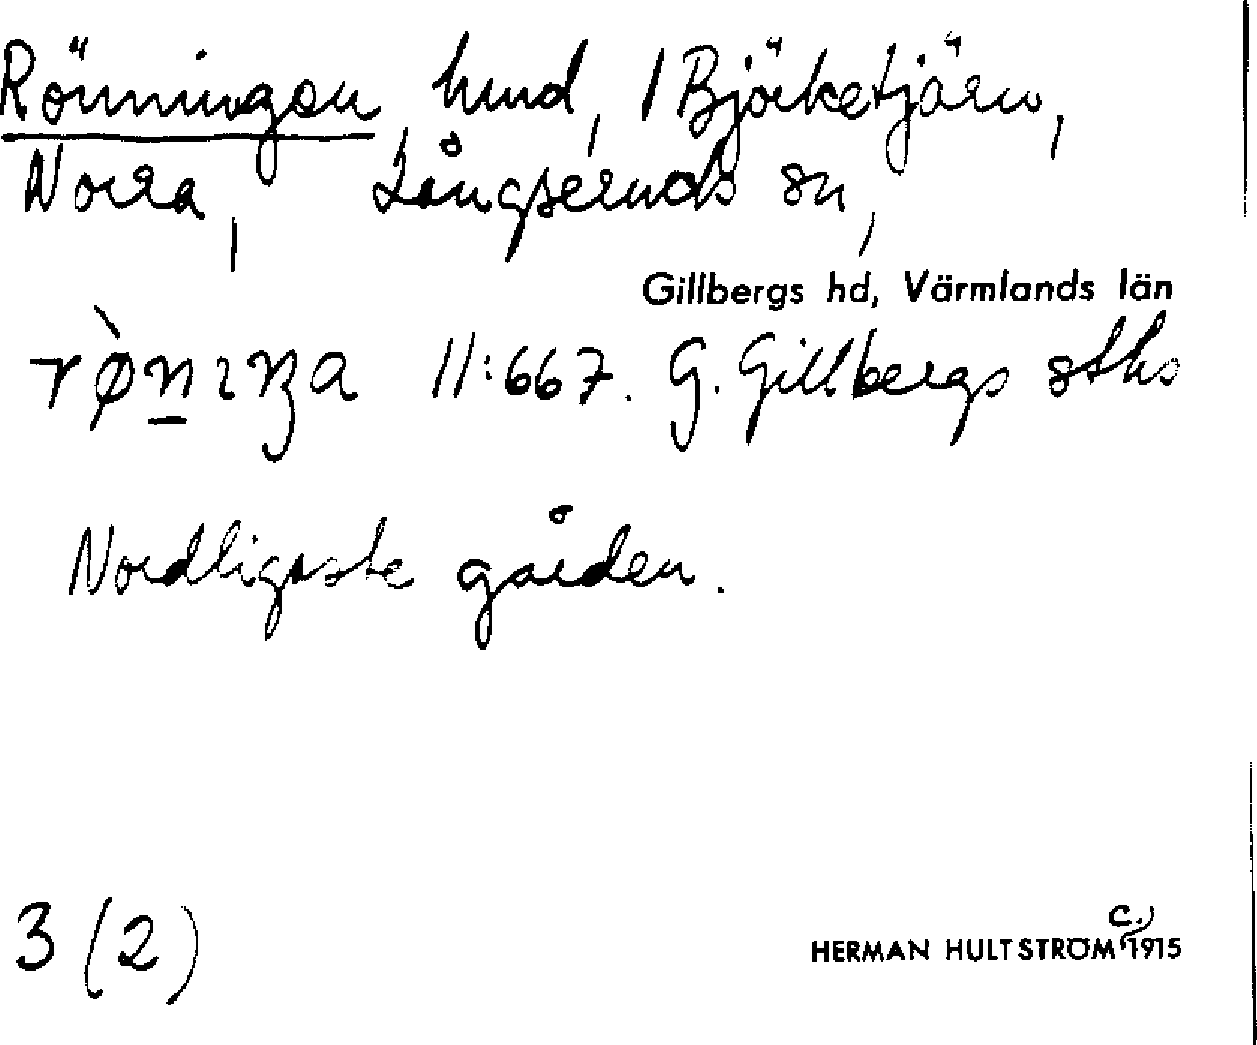 Rönningen, hmd, / Björketjärn,
Norra, Långseruds sn,
Gillbergs hd, Värmlands län
11:667. G. Gillbergs sths
Nordligaste gården.
3 (2)
HERMAN HULTSTRÖM c. 1915